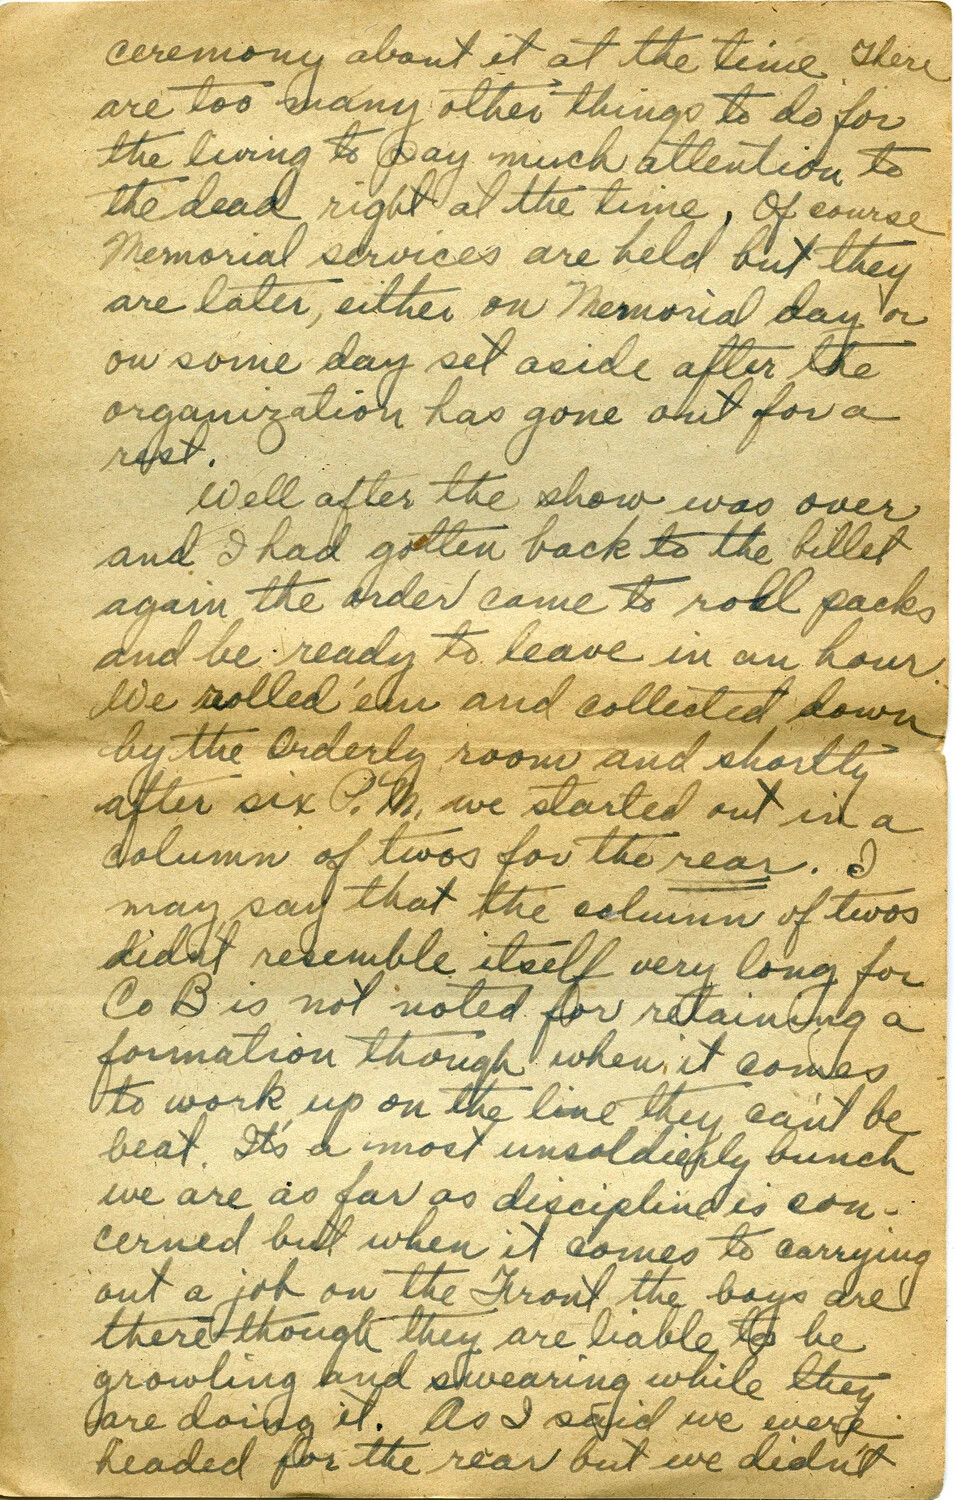 ceremony about it at the time. There
are too many other things to do for
the living to pay much attention to
the dead right at the time. Of course
Memorial services are held but they
are later, either on Memorial day or
on some day set aside after the
organization has gone out for a
rest.
Well after the show was over
and I had gotten back to the billet
again the order came to roll packs
and be ready to leave in an hour.
We rolled 'em and collected down
by the Orderly room and shortly
after six P.M. we started out in a
column of twos for the rear. I
may say that the column of twos
didn't resemble itself very long for
Co B is not noted for retaining a
formation though when it comes
to work up on the line they can't be
beat. It's a most unsoldierly bunch
we are as far as discipline is con-
cerned but when it comes to carrying
out a job on the Front the boys are
there though they are liable to be
growling and swearing while they
are doing it. As I said we were
headed for the rear but we didn't